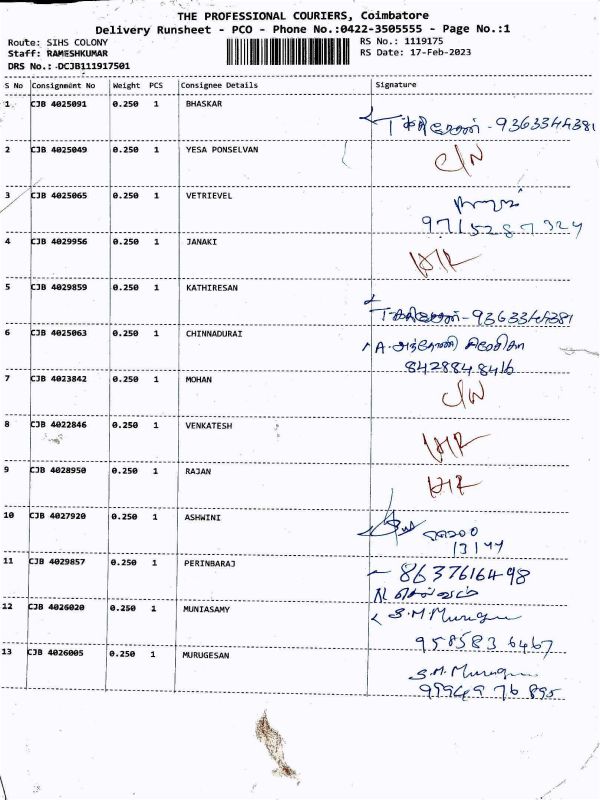 THE PROFESSIONAL COURIERS, Coimbatore
Delivery Runsheet - PCO - Phone No.:0422-3505555 - Page No.:1
Route: SIHS COLONY RS No.: 1119175
Staff: RAMESHKUMAR RS Date: 17-Feb-2023
DRS No.: DCJB111917501
S No Consignment No Weight PCS Consignee Details Signature
1 CJB 4025091 0.250 1 BHASKAR
- 9363344381
2 CJB 4025049 0.250 1 YESA PONSELVAN C/N
3 CJB 4025065 0.250 1 VETRIEVEL
9715287324
4 CJB 4029956 0.250 1 JANAKI
5 CJB 4029859 0.250 1 KATHIRESAN
- 9363344381
6 CJB 4025063 0.250 1 CHINNADURAI A.
8428848416
7 CJB 4023842 0.250 1 MOHAN C/N
8 CJB 4022846 0.250 1 VENKATESH
9 CJB 4028950 0.250 1 RAJAN
10 CJB 4027920 0.250 1 ASHWINI
11 CJB 4029857 0.250 1 PERINBARAJ 8637616498
N. செல்வம்
12 CJB 4026020 0.250 1 MUNIASAMY S.M.Murugan
9585836467
13 CJB 4026005 0.250 1 MURUGESAN S.M.Murugan
9994976895